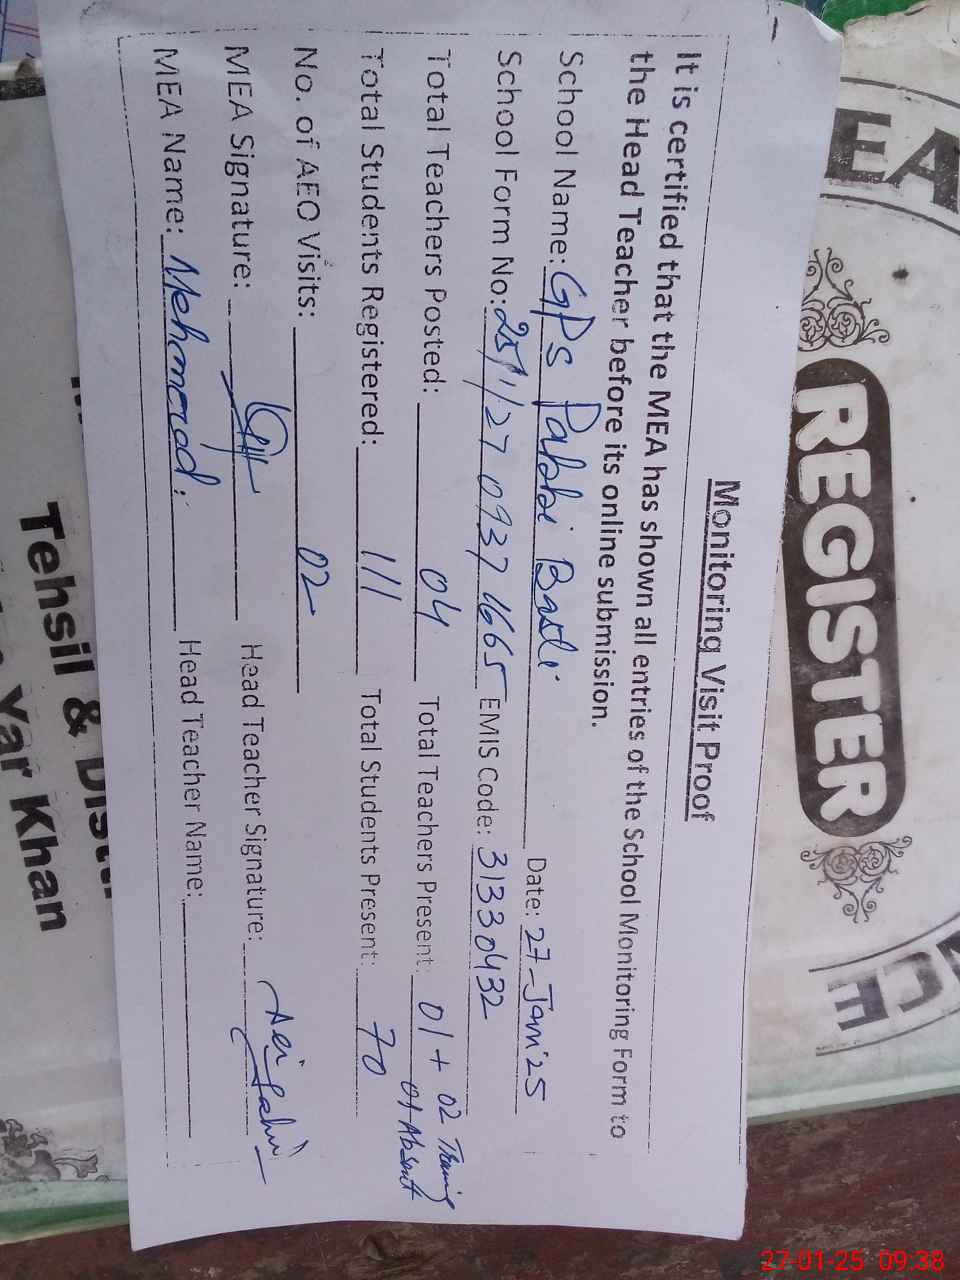 Monitoring Visit Proof
It is certified that the MEA has shown all entries of the School Monitoring Form to
the Head Teacher before its online submission.
School Name: GPS Pakki Basti Date: 27-Jan'25
School Form No: 251127 0937 1665 EMIS Code: 31330432
Total Teachers Posted: 04 Total Teachers Present: 01 + 02 Training
01-Absent
Total Students Registered: 111 Total Students Present: 70
No. of AEO Visits: 02
MEA Signature: Head Teacher Signature:
MEA Name: Mehmood: Head Teacher Name:
REGISTER
Tehsil &
Yar Khan
27-01-25 09:38